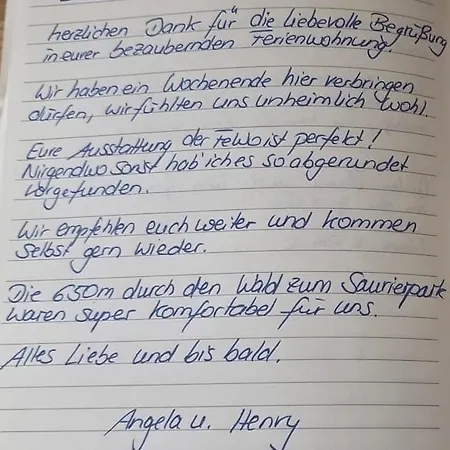 herzlichen Dank für die liebevolle Begrüßung
in eurer bezaubernden Ferienwohnung.
Wir haben ein Wochenende hier verbringen
dürfen, wir fühlten uns unheimlich wohl.
Eure Ausstattung der FeWo ist perfekt!
Nirgendwo sonst hab' ich es so abgerundet
vorgefunden.
Wir empfehlen euch weiter und kommen
selbst gern wieder.
Die 650m durch den Wald zum Saurierpark
waren super komfortabel für uns.
Alles Liebe und bis bald.
Angela u. Henry